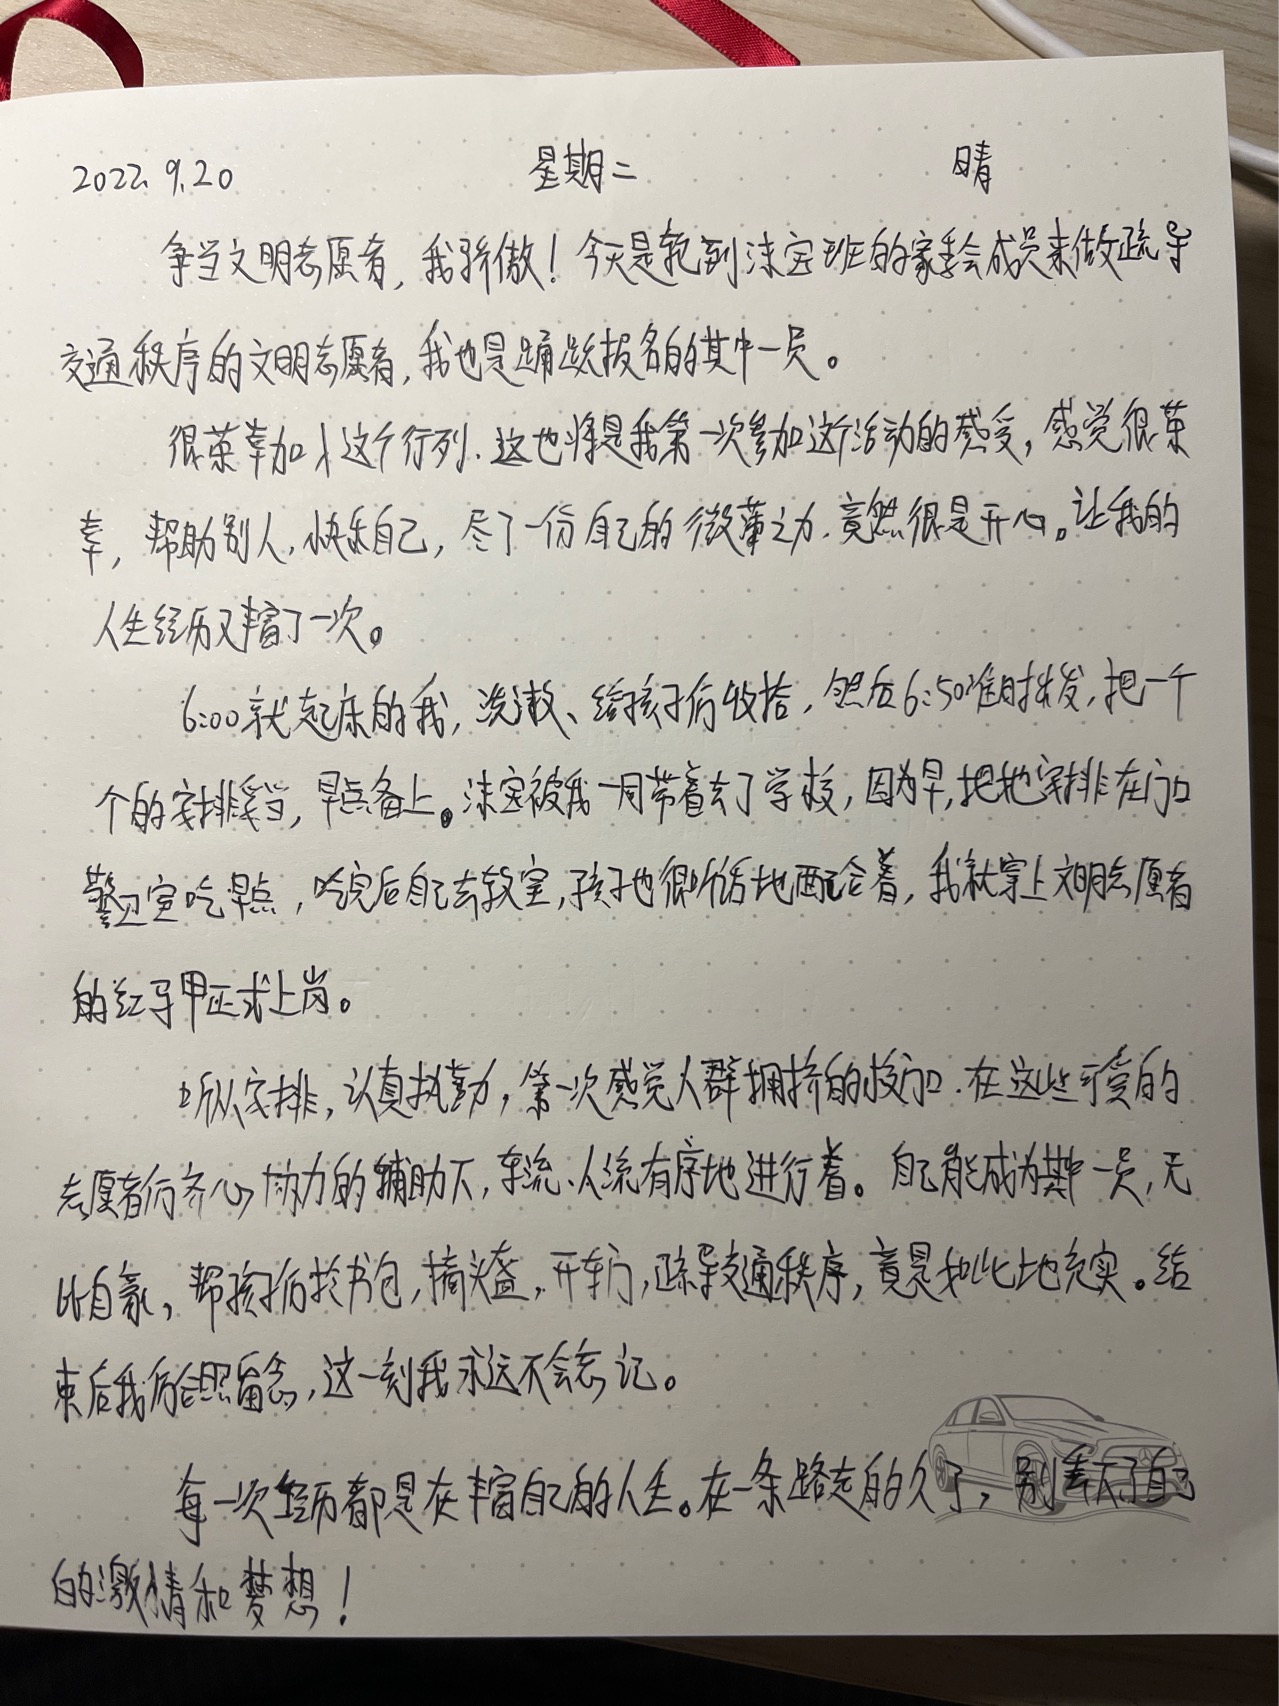 2022.9.20 星期二 晴
争当文明志愿者，我骄傲！今天是轮到沫宝班的家委会成员来做疏导
交通秩序的文明志愿者，我也是踊跃报名的其中一员。
很荣幸加入这个行列，这也将是我第一次参加这个活动的感受，感觉很荣
幸，帮助别人，快乐自己，尽了一份自己的微薄之力，竟然很是开心。让我的
人生经历又丰富了一次。
6:00就起床的我，洗漱、给孩子们收拾，然后6:50准时出发，把一个
个的安排妥当，早点备上。沫宝被我一同带着去了学校，因为早，把她安排在门口
警卫室吃早点，吃完后自己去教室，孩子也很听话地配合着，我就穿上文明志愿者
的红马甲正式上岗。
听从安排，认真执勤，第一次感觉人群拥挤的校门口，在这些可爱的
志愿者们齐心协力的辅助下，车流、人流有序地进行着。自己能成为其中一员，无
比自豪，帮孩子们拎书包，摘头盔，开车门，疏导交通秩序，竟是如此地充实。结
束后我们合照留念，这一刻我永远不会忘记。
每一次经历都是在丰富自己的人生。在一条路走的久了，别丢了自己
的激情和梦想！